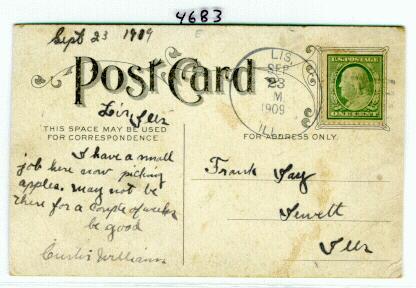 4683
Sept 23 1909
Post Card
Lis, Ills
THIS SPACE MAY BE USED
FOR CORRESPONDENCE.
I have a small
job here now picking
apples. may not be
there for a couple of weeks
be good
Curtis Williams
LIS,
SEP
23
M.
1909
ILL.
U.S. POSTAGE
ONE CENT
FOR ADDRESS ONLY.
Frank Fay
Jewett
Ills